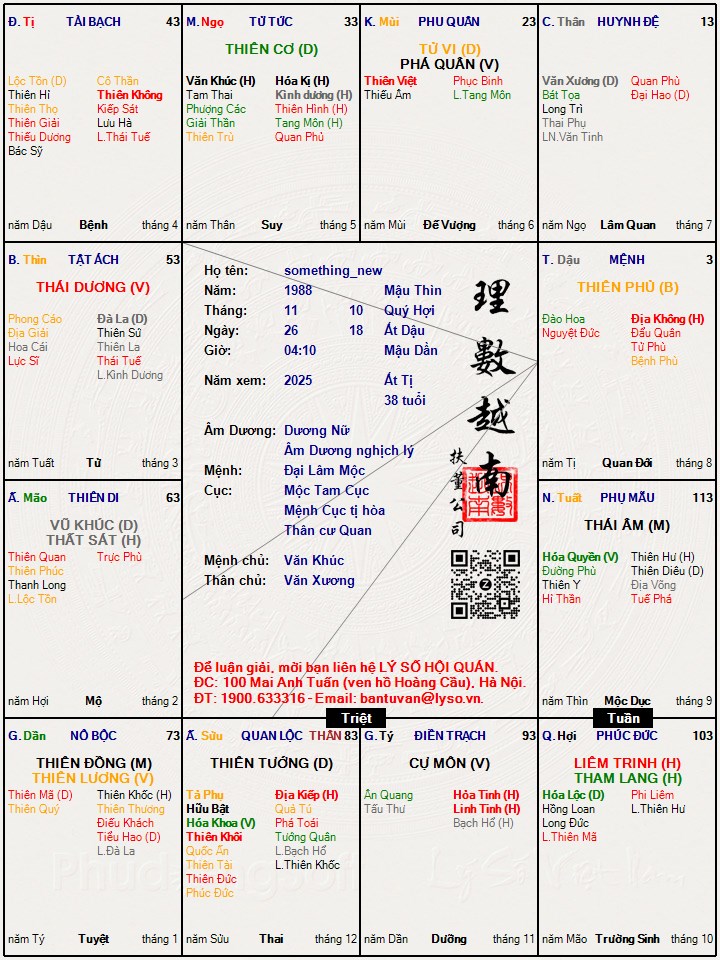 Đ. Tị TÀI BẠCH 43
Lộc Tồn (D) Cô Thần
Thiên Hỉ Thiên Không
Thiên Thọ Kiếp Sát
Thiên Giải Lưu Hà
Thiếu Dương L.Thái Tuế
Bác Sỹ
năm Dậu Bệnh tháng 4
M. Ngọ TỬ TỨC 33
THIÊN CƠ (D)
Văn Khúc (H) Hóa Kị (H)
Tam Thai Kình dương (H)
Phượng Các Thiên Hình (H)
Giải Thần Tang Môn (H)
Thiên Trù Quan Phủ
năm Thân Suy tháng 5
K. Mùi PHU QUÂN 23
TỬ VI (D)
PHÁ QUÂN (V)
Thiên Việt Phục Binh
Thiếu Âm L.Tang Môn
năm Mùi Đế Vượng tháng 6
C. Thân HUYNH ĐỆ 13
Văn Xương (D) Quan Phù
Bát Tọa Đại Hao (D)
Long Trì
Thai Phụ
LN.Văn Tinh
năm Ngọ Lâm Quan tháng 7
B. Thìn TẬT ÁCH 53
THÁI DƯƠNG (V)
Phong Cáo Đà La (D)
Địa Giải Thiên Sứ
Hoa Cái Thiên La
Lực Sĩ Thái Tuế
L.Kình Dương
năm Tuất Tử tháng 3
Họ tên: something_new
Năm: 1988 Mậu Thìn
Tháng: 11 10 Quý Hợi
Ngày: 26 18 Ất Dậu
Giờ: 04:10 Mậu Dần
Năm xem: 2025 Ất Tị
38 tuổi
Âm Dương: Dương Nữ
Âm Dương nghịch lý
Mệnh: Đại Lâm Mộc
Cục: Mộc Tam Cục
Mệnh Cục tị hòa
Thân cư Quan
Mệnh chủ: Văn Khúc
Thân chủ: Văn Xương
理數越南
扶董公司
Để luận giải, mời bạn liên hệ LÝ SỐ HỘI QUÁN.
ĐC: 100 Mai Anh Tuấn (ven hồ Hoàng Cầu), Hà Nội.
ĐT: 1900.633316 - Email: bantuvan@lyso.vn.
T. Dậu MỆNH 3
THIÊN PHỦ (B)
Đào Hoa Địa Không (H)
Nguyệt Đức Đẩu Quân
Tử Phù
Bệnh Phù
năm Tị Quan Đới tháng 8
Ấ. Mão THIÊN DI 63
VŨ KHÚC (D)
THẤT SÁT (H)
Thiên Quan Trực Phù
Thiên Phúc
Thanh Long
L.Lộc Tồn
năm Hợi Mộ tháng 2
N. Tuất PHỤ MẪU 113
THÁI ÂM (M)
Hóa Quyền (V) Thiên Hư (H)
Đường Phù Thiên Diêu (D)
Thiên Y Địa Võng
Hỉ Thần Tuế Phá
năm Thìn Mộc Dục tháng 9
Triệt
Tuần
G. Dần NÔ BỘC 73
THIÊN ĐỒNG (M)
THIÊN LƯƠNG (V)
Thiên Mã (D) Thiên Khốc (H)
Thiên Quý Thiên Thương
Điếu Khách
Tiểu Hao (D)
L.Đà La
năm Tý Tuyệt tháng 1
Ấ. Sửu QUAN LỘC THÂN 83
THIÊN TƯỚNG (D)
Tả Phụ Địa Kiếp (H)
Hữu Bật Quả Tú
Hóa Khoa (V) Phá Toái
Thiên Khôi Tướng Quân
Quốc Ấn L.Bạch Hổ
Thiên Tài L.Thiên Khốc
Thiên Đức
Phúc Đức
năm Sửu Thai tháng 12
G. Tý ĐIỀN TRẠCH 93
CỰ MÔN (V)
Ân Quang Hỏa Tinh (H)
Tấu Thư Linh Tinh (H)
Bạch Hổ (H)
năm Dần Dưỡng tháng 11
Q. Hợi PHÚC ĐỨC 103
LIÊM TRINH (H)
THAM LANG (H)
Hóa Lộc (D) Phi Liêm
Hồng Loan L.Thiên Hư
Long Đức
L.Thiên Mã
năm Mão Trường Sinh tháng 10